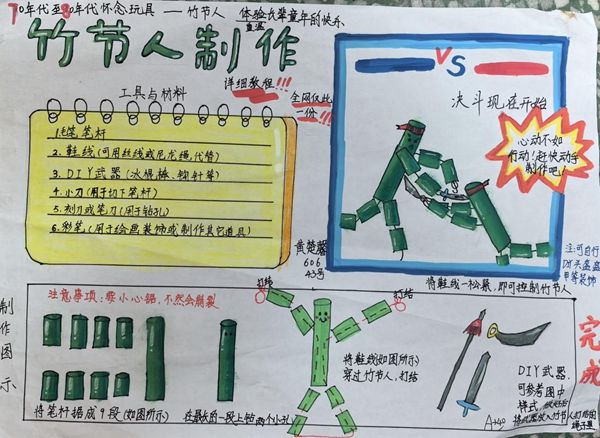 70年代至80年代怀念玩具——竹节人 体验长辈童年的快乐
重温
竹节人制作
详细教程!!!
全网仅此一份!!!
工具与材料
1.毛笔笔杆
2.鞋线(可用丝线或尼龙绳代替)
3.DIY武器(冰棍棒、钩针等)
4.小刀(用于切下笔杆)
5.刻刀或笔刀(用于钻孔)
6.彩笔(用于绘画装饰或制作其它道具)
黄楚馨
606
43号
VS
决斗现在开始
心动不如
行动!赶快动手
制作吧!
注:可自行
DIY头盔盔
甲等装饰
将鞋线一松一紧,即可控制竹节人
制作图示
注意事项:要小心锯,不然会崩裂
将笔杆锯成9段(如图所示)
在最长的一段上钻两个小孔
打结
打结
将鞋线(如图所示)
穿过竹节人,打结
DIY武器
可参考图中
样式,
完成